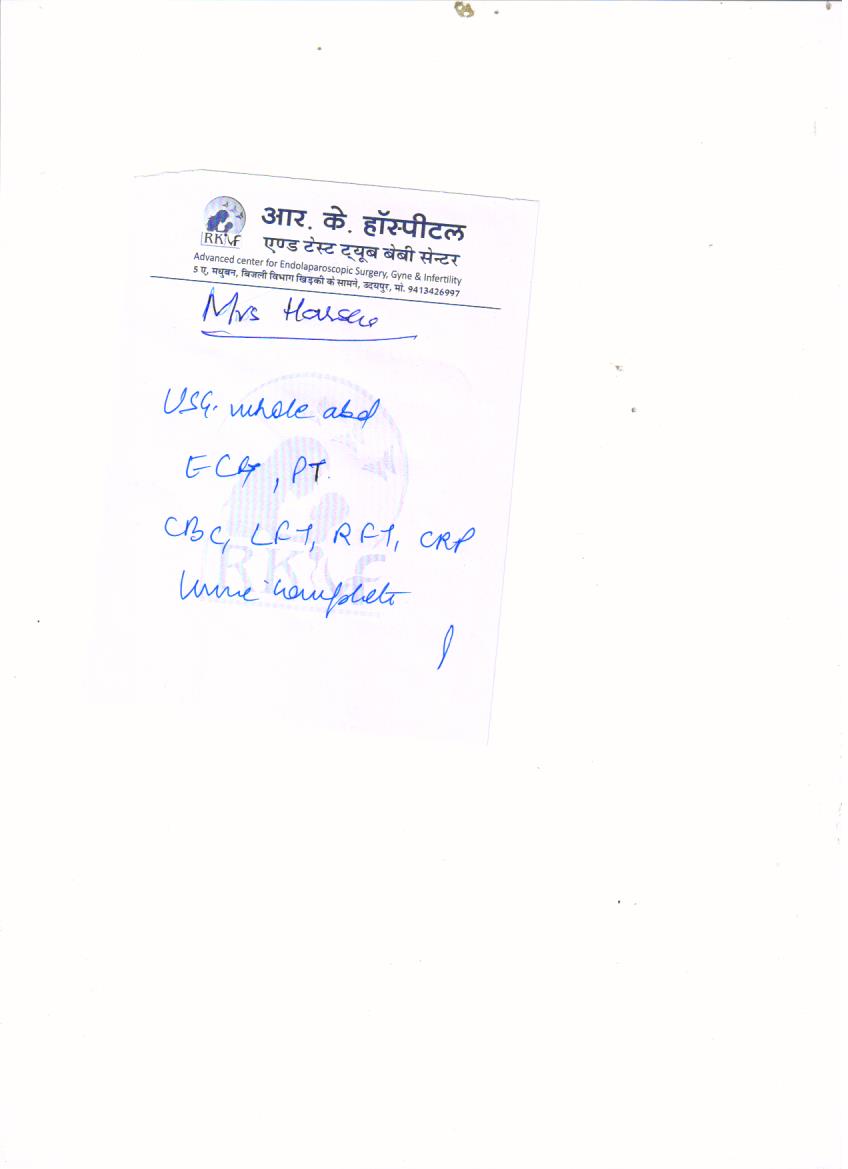 RKIVF
आर. के. हॉस्पीटल
एण्ड टेस्ट ट्यूब बेबी सेन्टर
Advanced center for Endolaparoscopic Surgery, Gyne & Infertility
5 ए, मधुबन, बिजली विभाग खिड़की के सामने, उदयपुर, मो. 9413426997
Mrs
USG. whole abd
ECG, PT.
CBC, LFT, RFT, CRP
RKIVF
Urine complete